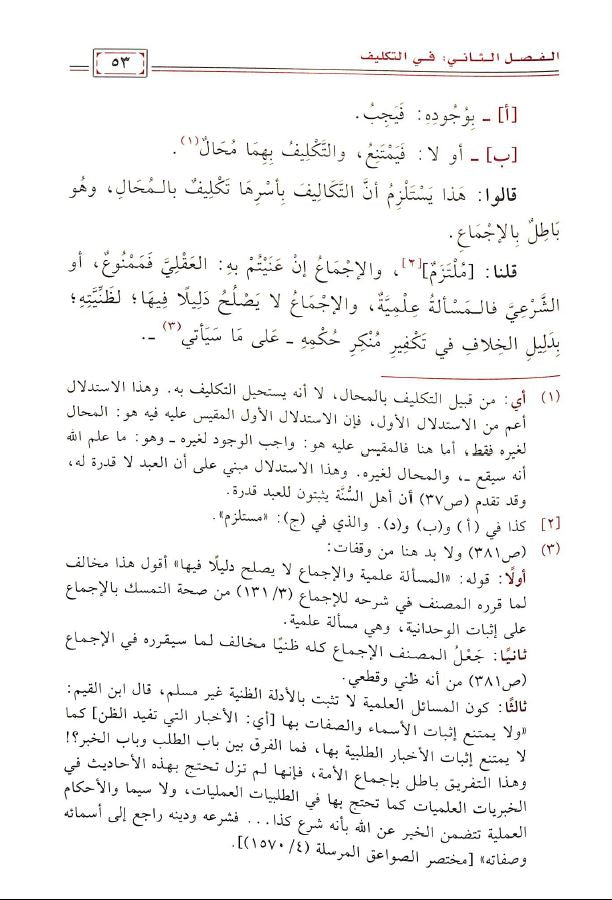 الفصل الثاني: في التكليف
٥٣
[أ] ـ بِوُجُودِهِ: فَيَجِبُ.
[ب] ـ أو لا: فَيَمْتَنِعُ، والتَّكْلِيفُ بِهِمَا مُحَالٌ(١).
قالوا: هَذا يَسْتَلْزِمُ أنَّ التَّكَالِيفَ بِأسْرِهَا تَكْلِيفٌ بالـمُحَالِ، وهُو
بَاطِلٌ بِالإجْمَاعِ.
قلنا: [مُلْتَزَمٌ][٢]، والإجْمَاعُ إنْ عَنَيْتُمْ بهِ: العَقْلِيَّ فَمَمْنُوعٌ، أو
الشَّرْعِيَّ فالـمَسْألةُ عِلْمِيَّةٌ، والإجْمَاعُ لا يَصْلُحُ دَلِيلًا فِيهَا؛ لظَنِّيَّتِهِ؛
بِدَلِيلِ الخِلافِ في تَكْفِيرِ مُنْكِرِ حُكْمِهِ ـ عَلى مَا سَيَأتي(٣) ـ.
(١) أي: من قبيل التكليف بالمحال، لا أنه يستحيل التكليف به. وهذا الاستدلال
أعم من الاستدلال الأول، فإن الاستدلال الأول المقيس عليه فيه هو: المحال
لغيره فقط، أما هنا فالمقيس عليه هو: واجب الوجود لغيره ـ وهو: ما علم الله
أنه سيقع ـ، والمحال لغيره. وهذا الاستدلال مبني على أن العبد لا قدرة له،
وقد تقدم (ص٣٧) أن أهل السُّنَّة يثبتون للعبد قدرة.
[٢] كذا في (أ) و(ب) و(د). والذي في (ج): «مستلزم».
(٣) (ص٣٨١) ولا بد هنا من وقفات:
أولًا: قوله: «المسألة علمية والإجماع لا يصلح دليلًا فيها» أقول هذا مخالف
لما قرره المصنف في شرحه للإجماع (٣/ ١٣١) من صحة التمسك بالإجماع
على إثبات الوحدانية، وهي مسألة علمية.
ثانيًا: جَعْلُ المصنف الإجماع كله ظنيًا مخالف لما سيقرره في الإجماع
(ص٣٨١) من أنه ظني وقطعي.
ثالثًا: كون المسائل العلمية لا تثبت بالأدلة الظنية غير مسلم، قال ابن القيم:
«ولا يمتنع إثبات الأسماء والصفات بها [أي: الأخبار التي تفيد الظن] كما
لا يمتنع إثبات الأخبار الطلبية بها، فما الفرق بين باب الطلب وباب الخبر؟!
وهذا التفريق باطل بإجماع الأمة، فإنها لم تزل تحتج بهذه الأحاديث في
الخبريات العلميات كما تحتج بها في الطلبيات العمليات، ولا سيما والأحكام
العملية تتضمن الخبر عن الله بأنه شرع كذا... فشرعه ودينه راجع إلى أسمائه
وصفاته» [مختصر الصواعق المرسلة (٤/ ١٥٧٠)].